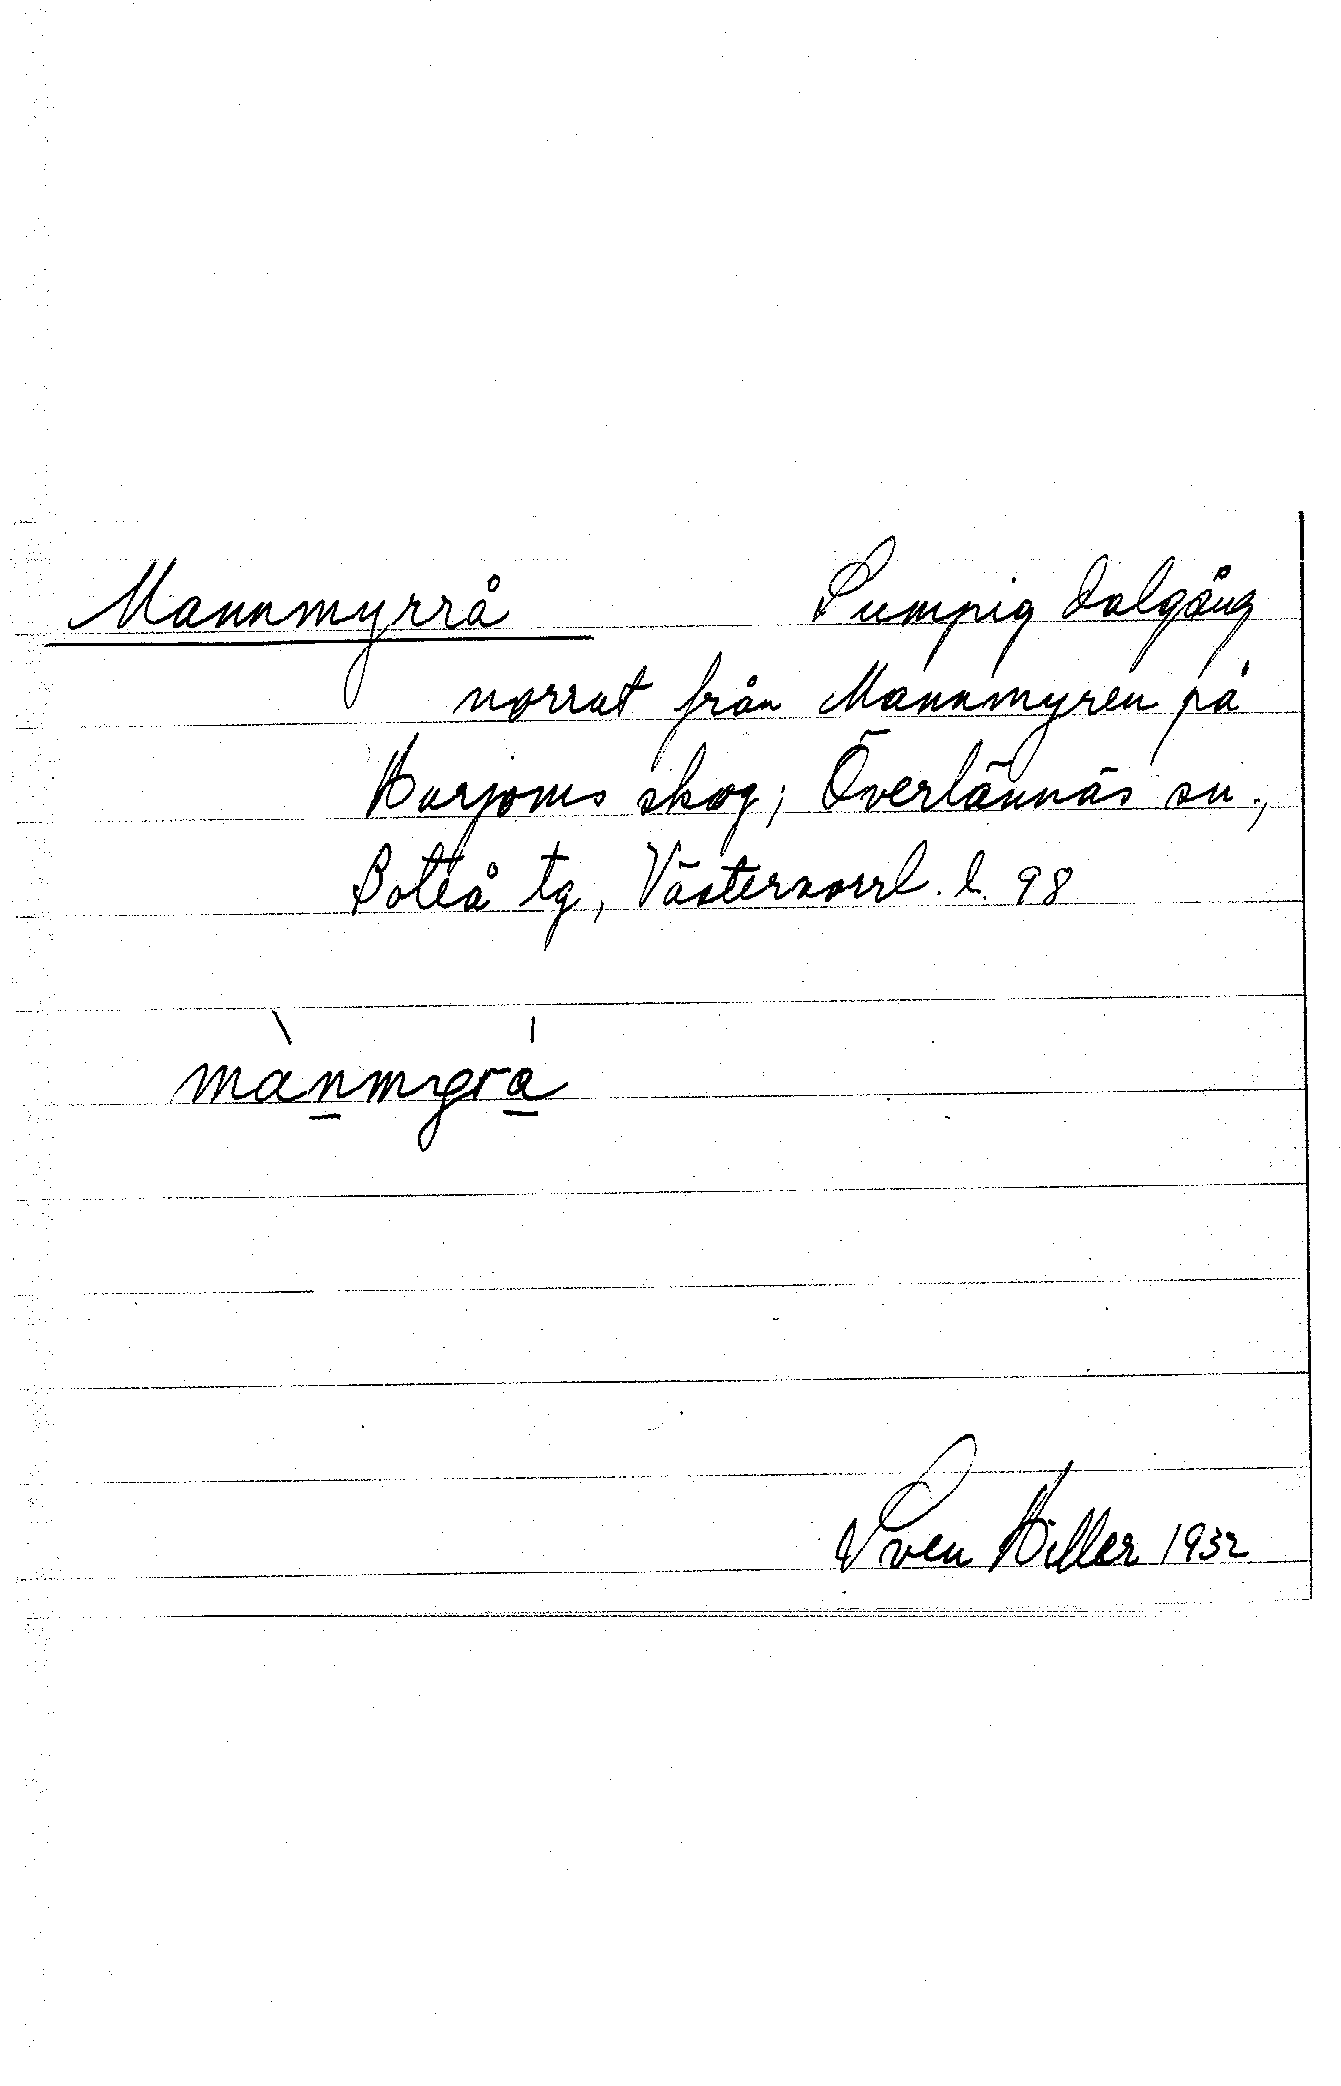 Mannmyrrå Sumpig dalgång
norrut från Mannmyren på
Hurjoms skog; Överlännäs sn.,
Boteå tg, Västernorrl. l. 98
mànmyrá
Sven Hiller 1932